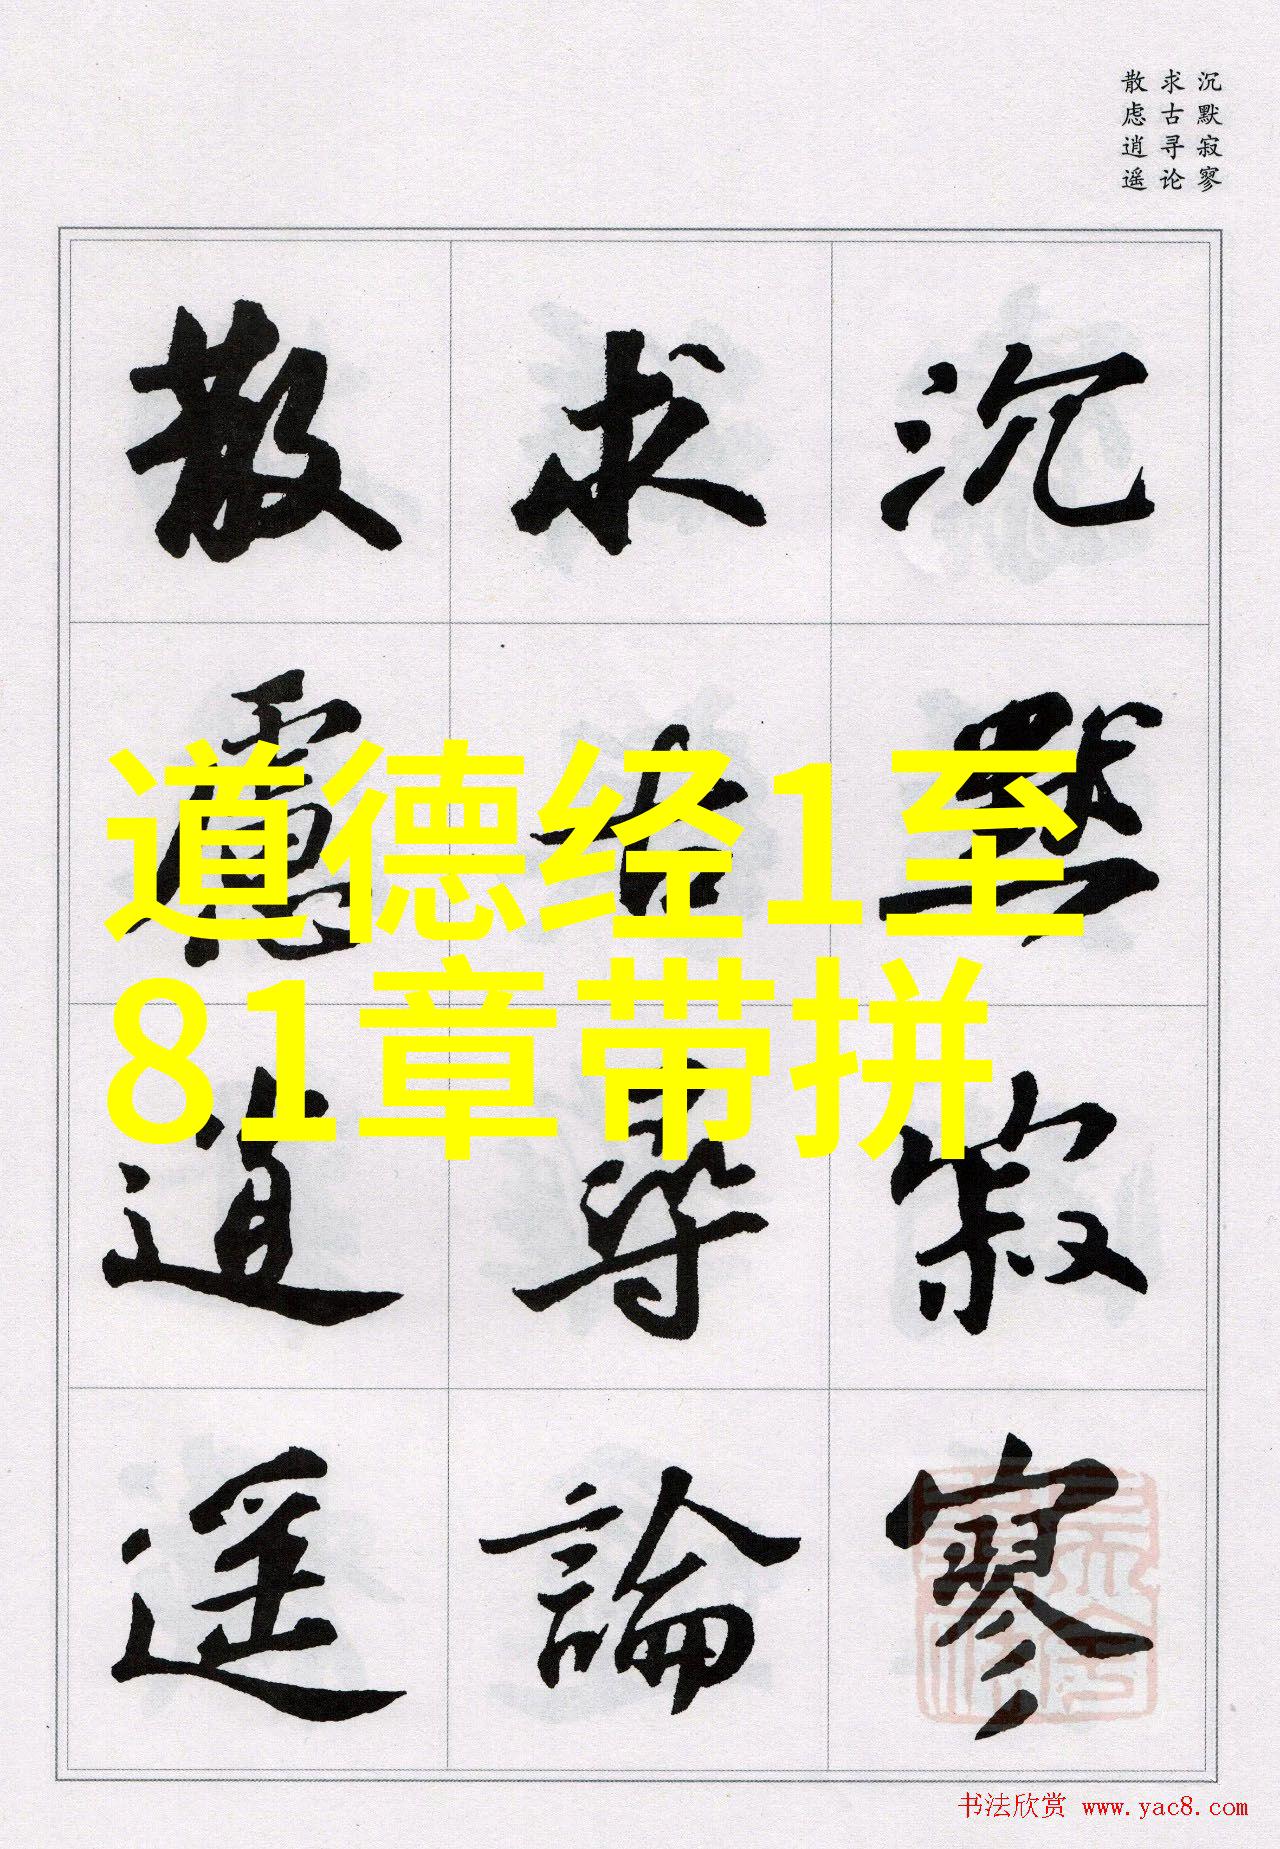 沉默寂寥
求古寻论
散虑逍遥
沉默寂寥
求古尋論
散慮逍遥
道德经1至
81章带拼
书法欣赏 www.yac8.com